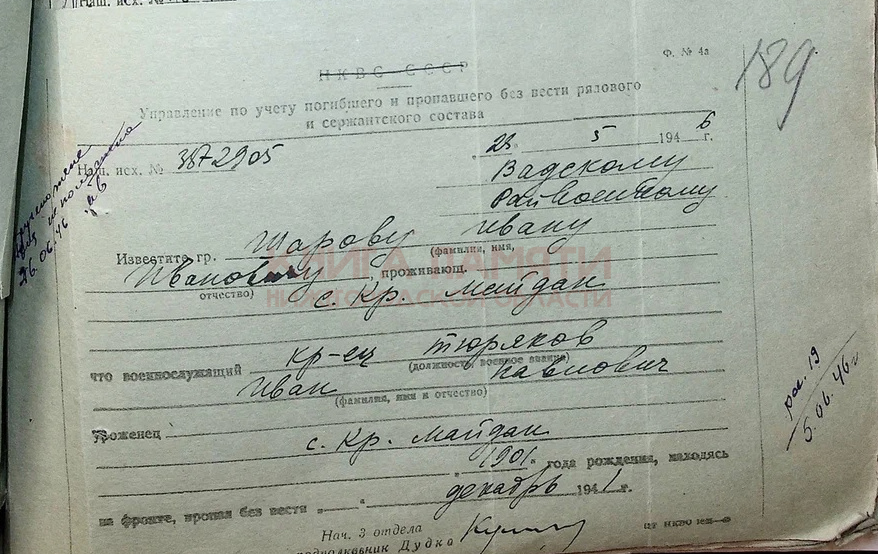 Наш. исх. №
НКВС СССР
Ф. № 4а
189
Управление по учету погибшего и пропавшего без вести рядового
и сержантского состава
Наш. исх. № 3872905
"23" 5 1946 г.
Вадскому
Райвоенкому
26.06.46
Известите гр. Шарову Ивану
(фамилия, имя,
Ивановичу, проживающ.
отчество)
с. Кр. Майдан
КНИГА ПАМЯТИ
НИЖЕГОРОДСКОЙ ОБЛАСТИ
что военнослужащий кр-ец Тюряков
(должность, военное звание)
Иван Павлович
(фамилия, имя и отчество)
вх. 19
5.06.46 г
уроженец с. Кр. Майдан
1901 года рождения, находясь
на фронте, пропал без вести " " декабрь 1941 г.
Нач. 3 отдела
подполковник Дудка